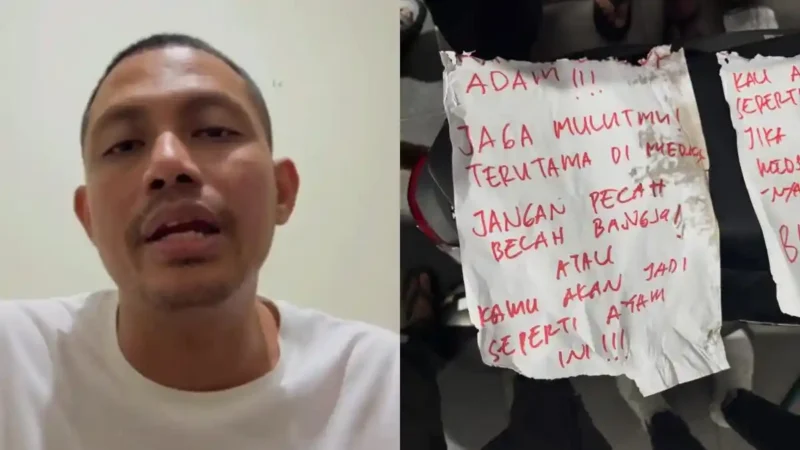 ADAM!!!
JAGA MULUTMU!
TERUTAMA DI
JANGAN PECAH
BECAH BANGSA!
ATAU
KAMU AKAN JADI
SEPERTI AYAM
INI!!!
KAU
SEPERTI
JIKA